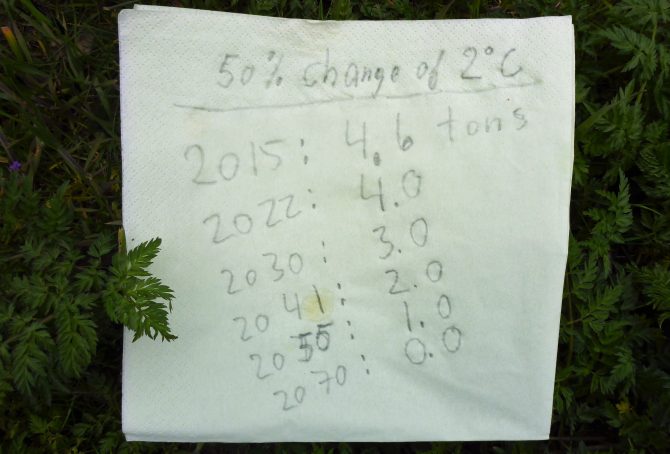 50% change of 2°C
2015: 4.6 tons
2022: 4.0
2030: 3.0
2041: 2.0
2055: 1.0
2070: 0.0